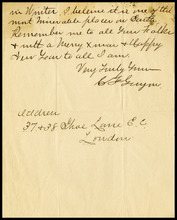 in Winter, I believe it is one of the
most miserable places on Earth
Remember me to all your folks
& with a Merry Xmas & Happy
New Year to all I am.
Very Truly Yours
Address
37 & 38 Shoe Lane E.C.
London.